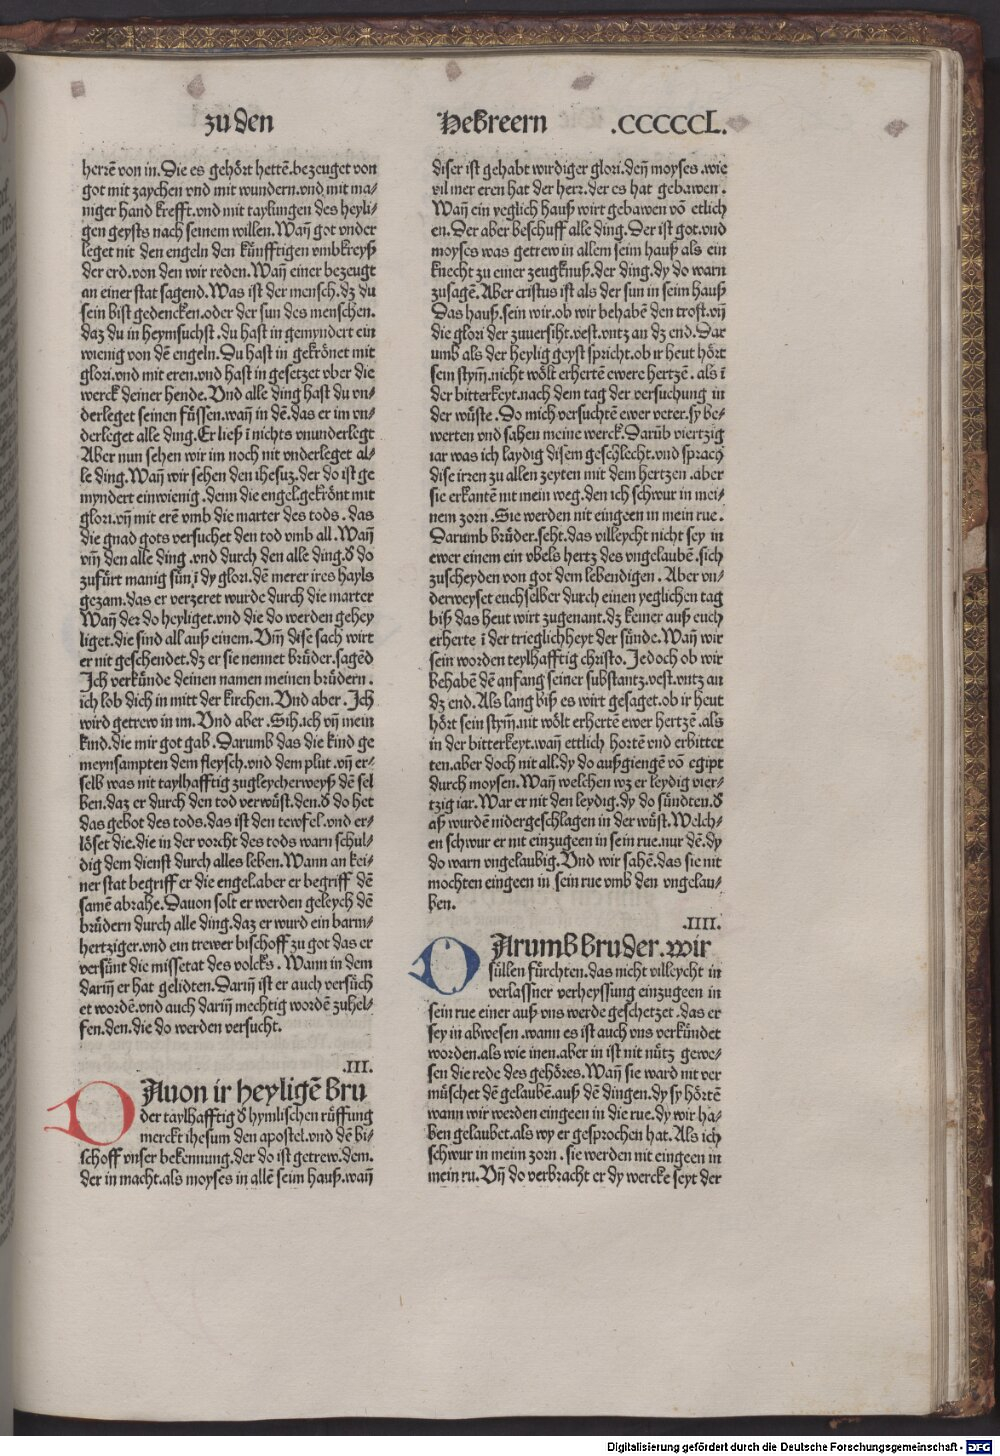 zu den
Hebreern .CCCCCL.
herrē von in. Die es gehört hettē. bezeuget von
got mit zaychen vnd mit wundern. vnd mit ma-
niger hand krefft. vnd mit taylungen des heyli-
gen geysts nach seinem willen. Wañ got vnder
leget nit den engeln den künfftigen vmbkreyß
der erd. von den wir reden. Wañ einer bezeugt
an einer stat sagend. Was ist der mensch. dz du
sein bist gedencken. oder der sun des menschen.
daz du in heymsuchst. du hast in gemyndert ein
wienig von dē engeln. Du hast in gekrönet mit
glori. vnd mit eren. vnd hast in gesetzet vber die
werck deiner hende. Vnd alle ding hast du vn-
derleget seinen füssen. wañ in dē. das er im vn-
derleget alle ding. Er ließ ī nichts vnunderlegt
Aber nun sehen wir im noch nit vnderleget al-
le ding. Wañ wir sehen den ihesuz. der do ist ge
myndert ein wienig. denn die engel. gekrönt mit
glori. vñ mit erē vmb die marter des tods. das
die gnad gots versuchet den tod vmb all. Wañ
vm̄ den alle ding. vnd durch den alle ding. d̄ do
zufürt manig sün ī dy glori. dē merer ires hayls
gezam. das er verzeret wurde durch die marter
Wañ der do heyliget. vnd die do werden gehey
liget. die sind all auß einem. Vm̄ dise sach wirt
er nit geschendet. dz er sie nennet brüder. sagēd
Ich verkünde deinen namen meinen brüdern.
ich lob dich in mitt der kirchen. Vnd aber. Ich
wird getrew in im. Vnd aber. Sih. ich vñ mein
kind. die mir got gab. Darumb das die kind ge
meynsampten dem fleysch. vnd dem plut. vñ er-
selb was nit taylhafftig zugleycherweyß dē sel
ben. daz er durch den tod verwüst. den. d̄ do het
das gebot des tods. das ist den tewfel. vnd er-
löset die. die in der vorcht des tods warn schul-
dig dem dienst durch alles leben. Wann an kei-
ner stat begriff er die engel. aber er begriff dē
samē abrahe. Dauon solt er werden geleych dē
brüdern durch alle ding. daz er wurd ein barm-
hertziger. vnd ein trewer bischoff zu got das er
versünt die missetat des volcks. Wann in dem
dariñ er hat gelidten. Dariñ ist er auch versüch
et wordē. vnd auch dariñ mechtig wordē zuhel-
fen. den. die do werden versucht.
.III.
DAuon ir heyligē bru
der taylhafftig d̄ hymlischen rüffung
merckt ihesum den apostel. vnd dē bi-
schoff vnser bekennung. der do ist getrew. dem.
der in macht. als moyses in allē seim hauß. wañ
diser ist gehabt wirdiger glori. deñ moyses. wie
vil mer eren hat der herr. der es hat gebawen.
Wañ ein yeglich hauß wirt gebawen vō etlich
en. Der aber beschuff alle ding. Der ist got. vnd
moyses was getrew in allem sein hauß als ein
knecht zu einer zeugknuß. der ding. dy do warn
zusagē. Aber cristus ist als der sun in seim hauß
Das hauß. sein wir. ob wir behabē den trost. vñ
die glori der zuuersiht. vest. vntz an dz end. Dar
umb als der heylig geyst spricht. ob ir heut hört
sein stym̄. nicht wölt erhertē ewere hertzē. als ī
der bitterkeyt. nach dem tag der versuchung in
der wüste. Do mich versuchtē ewer veter. sy be-
werten vnd sahen meine werck. Darūb viertzig
iar was ich laydig disem geschlecht. vnd sprach
dise irren zu allen zeyten mit dem hertzen. aber
sie erkantē nit mein weg. den ich schwur in mei-
nem zorn. Sie werden nit eingeen in mein rue.
Darumb brüder. seht. das villeycht nicht sey in
ewer einem ein vbels hertz des vngelaubē. sich
zuscheyden von got dem lebendigen. Aber vn-
derweyset euchselber durch einen yeglichen tag
biß das heut wirt zugenant. dz keiner auß euch
erherte ī der trieglichheyt der sünde. Wañ wir
sein worden teylhafftig christo. Jedoch ob wir
behabē dē anfang seiner substantz. vest. vntz an
dz end. Als lang biß es wirt gesaget. ob ir heut
hört sein stym̄. nit wölt erhertē ewer hertzē. als
in der bitterkeyt. wañ ettlich hortē vnd erbitter
ten. aber doch nit all. dy do außgiengē vō egipt
durch moysen. Wañ welchen wz er leydig vier-
tzig iar. War er nit den leydig. dy do sündten. d̄
aß wurdē nidergeschlagen in der wüst. Welch-
en schwur er nit einzugeen in sein rue. nur dē. dy
do warn vngelaubig. Vnd wir sahē. das sie nit
mochten eingeen in sein rue vmb den vngelau-
ben.
.IIII.
DArumb bruder. wir
süllen fürchten. das nicht villeycht in
verlassner verheyssung einzugeen in
sein rue einer auß vns werde geschetzet. das er
sey in abwesen. wann es ist auch vns verkündet
worden. als wie inen. aber in ist nit nütz gewe-
sen die rede des gehöres. Wañ sie ward nit ver
müschet dē gelaubē. auß dē dingen. dy sy hörtē
wann wir werden eingeen in die rue. dy wir ha-
ben gelaubet. als wy er gesprochen hat. Als ich
schwur in meim zorn. sie werden nit eingeen in
mein ru. Vñ do verbracht er dy wercke seyt der
Digitalisierung gefördert durch die Deutsche Forschungsgemeinschaft - DFG